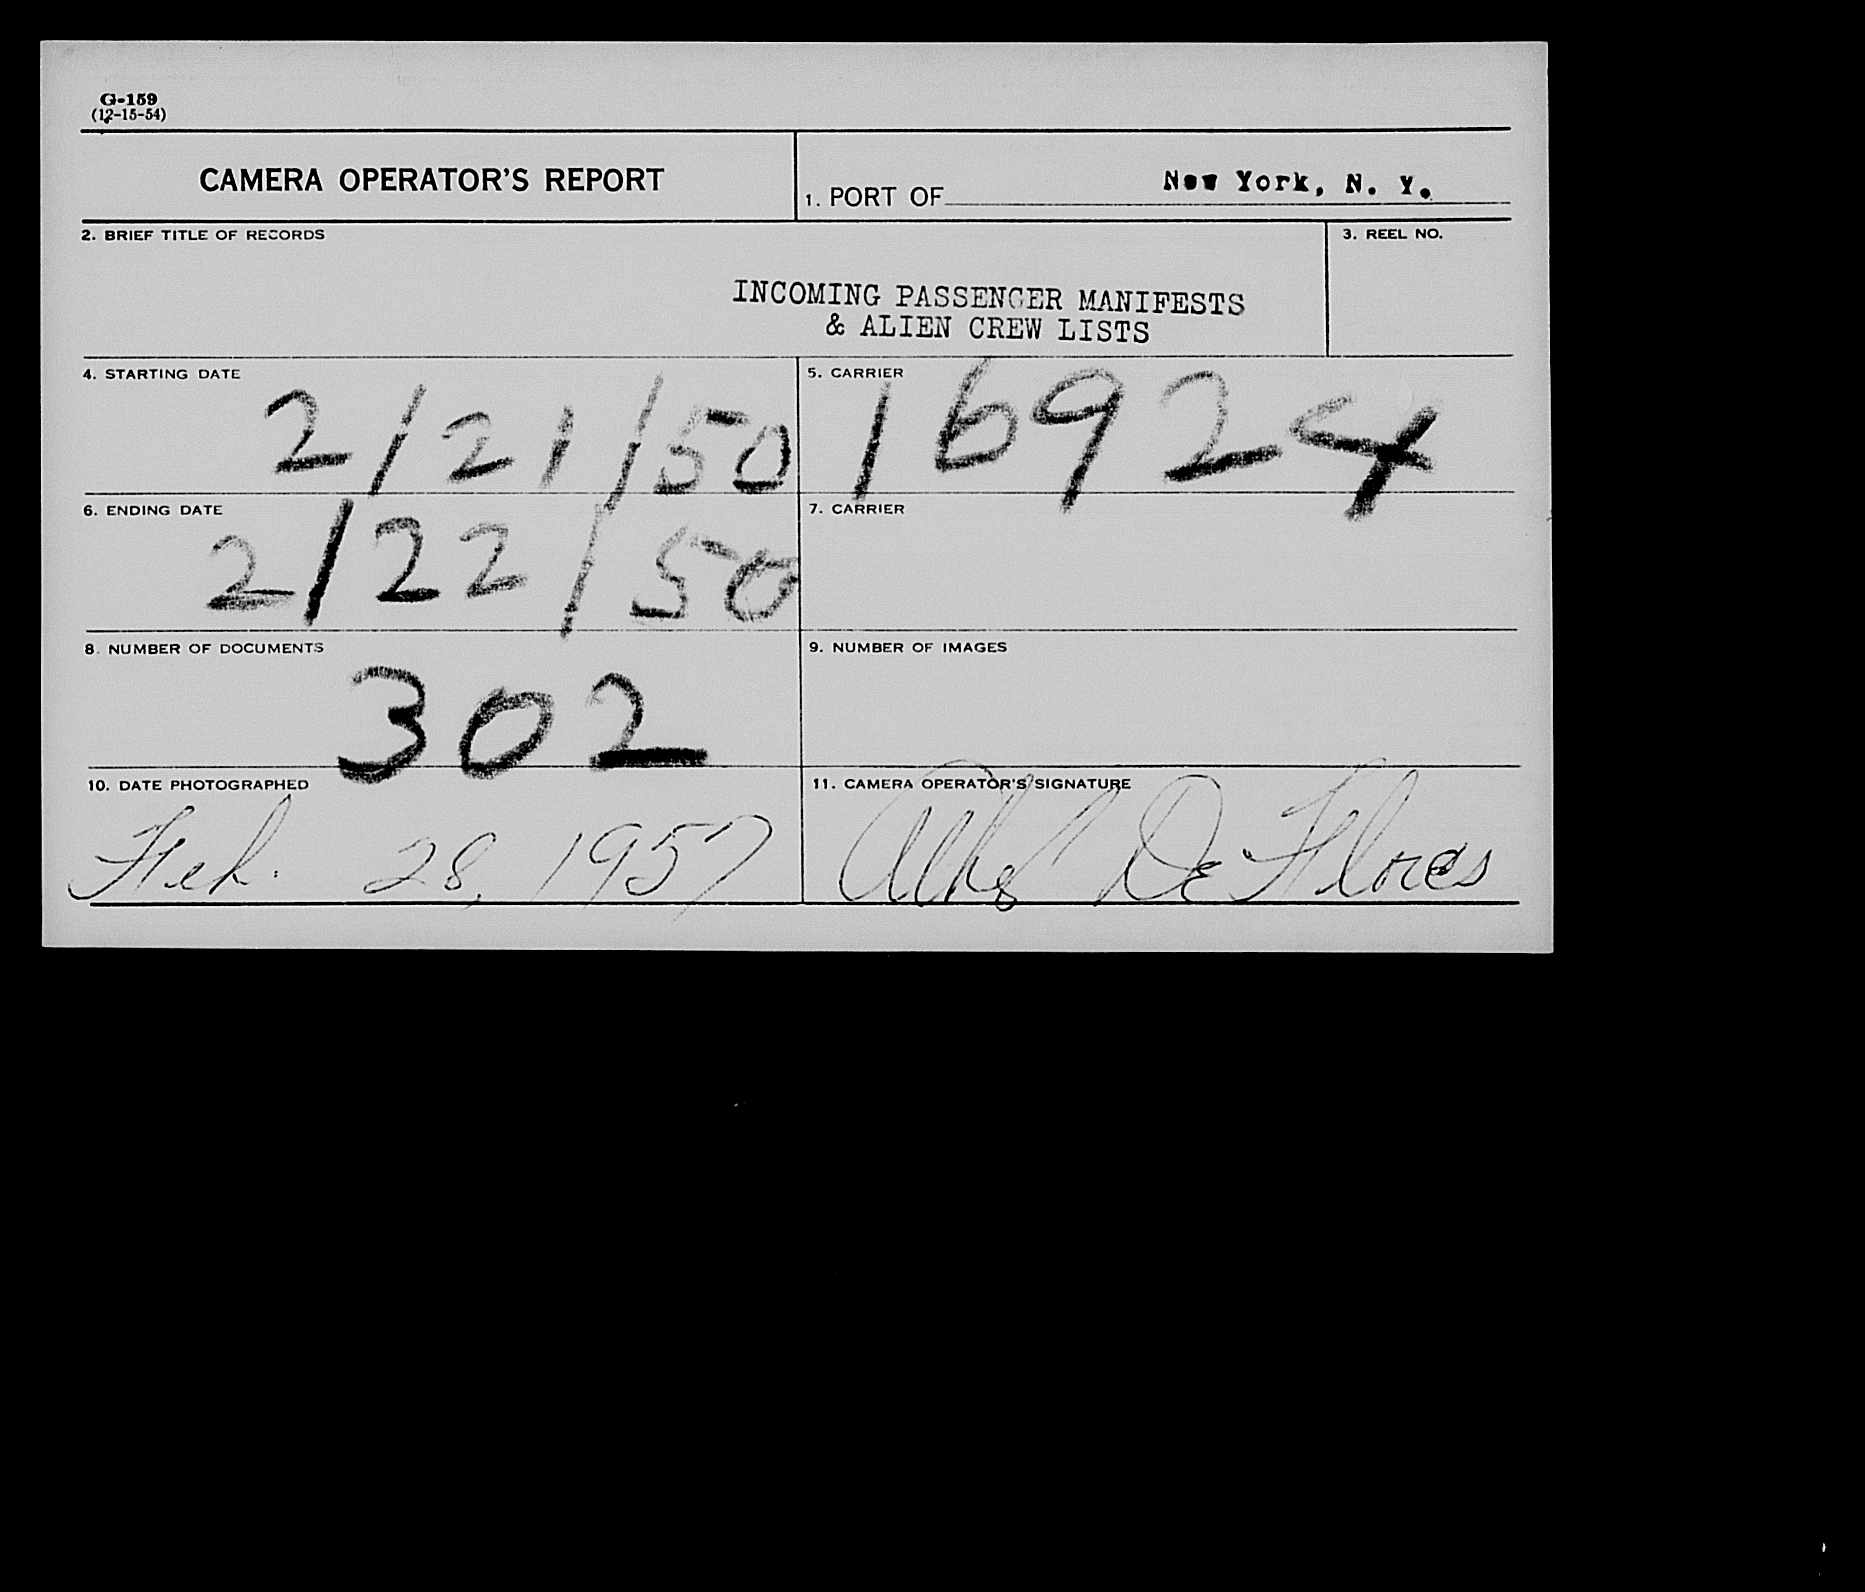 G-159
(12-15-54)
CAMERA OPERATOR'S REPORT
1. PORT OF New York, N. Y.
2. BRIEF TITLE OF RECORDS
INCOMING PASSENGER MANIFESTS
& ALIEN CREW LISTS
3. REEL NO.
4. STARTING DATE
2/21/50
5. CARRIER
16924
6. ENDING DATE
2/22/50
7. CARRIER
8. NUMBER OF DOCUMENTS
302
9. NUMBER OF IMAGES
10. DATE PHOTOGRAPHED
Feb. 28, 1957
11. CAMERA OPERATOR'S SIGNATURE
De Flores